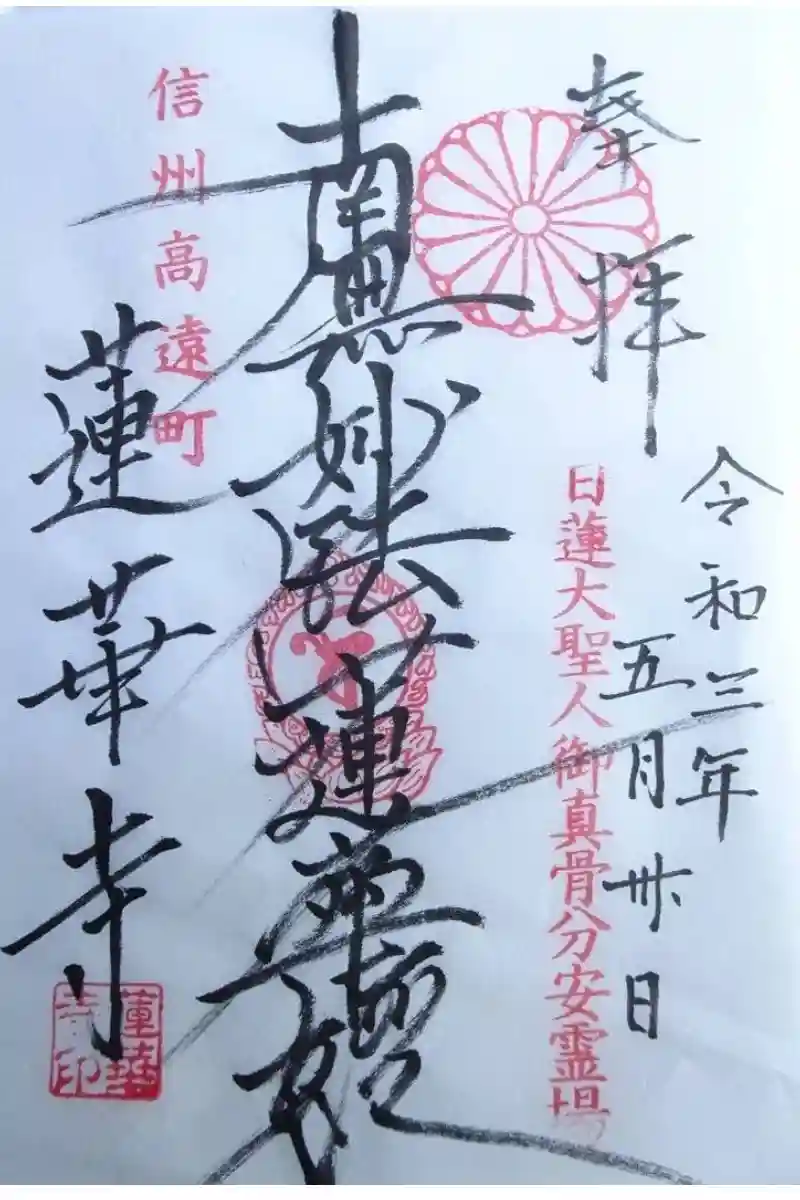 奉拝
令和三年
五月卅日
日蓮大聖人御真骨分安霊場
南無妙法蓮華経
信州高遠町
蓮華寺
蓮華
寺印